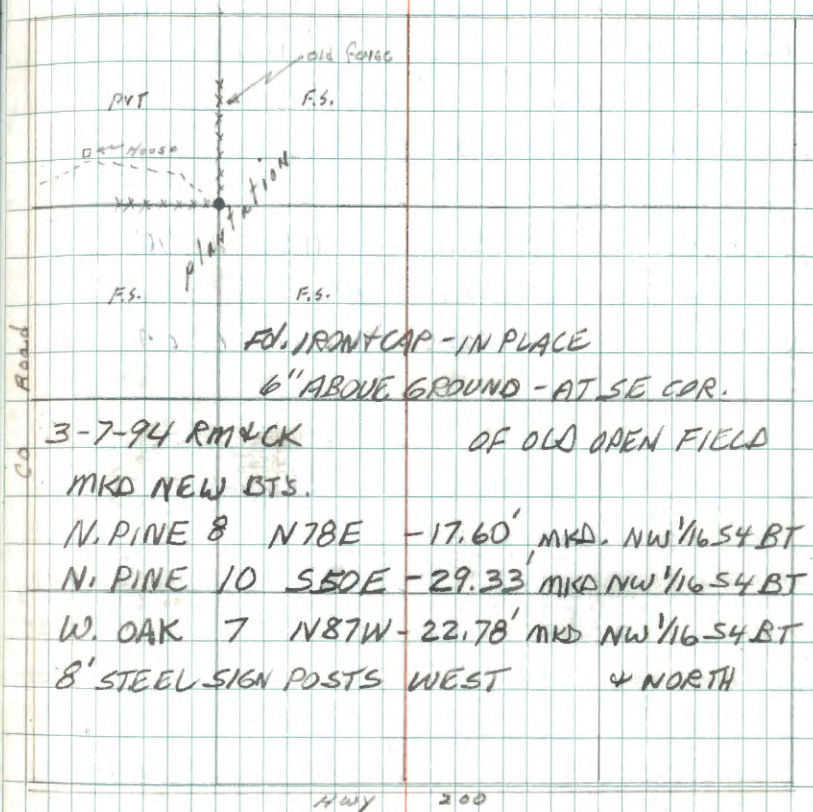 old fence
PVT
F.S.
House
plantation
F.S.
F.S.
Fd. IRON & CAP - IN PLACE
6" ABOVE GROUND - AT SE COR.
OF OLD OPEN FIELD
3-7-94 RM & CK
MKD NEW BTS.
N. PINE 8 N78E - 17.60' MKD. NW 1/16 S4 BT
N. PINE 10 S50E - 29.33' MKD NW 1/16 S4 BT
W. OAK 7 N87W - 22.78' MKD NW 1/16 S4 BT
8' STEEL SIGN POSTS WEST & NORTH
CO Road
HWY 200